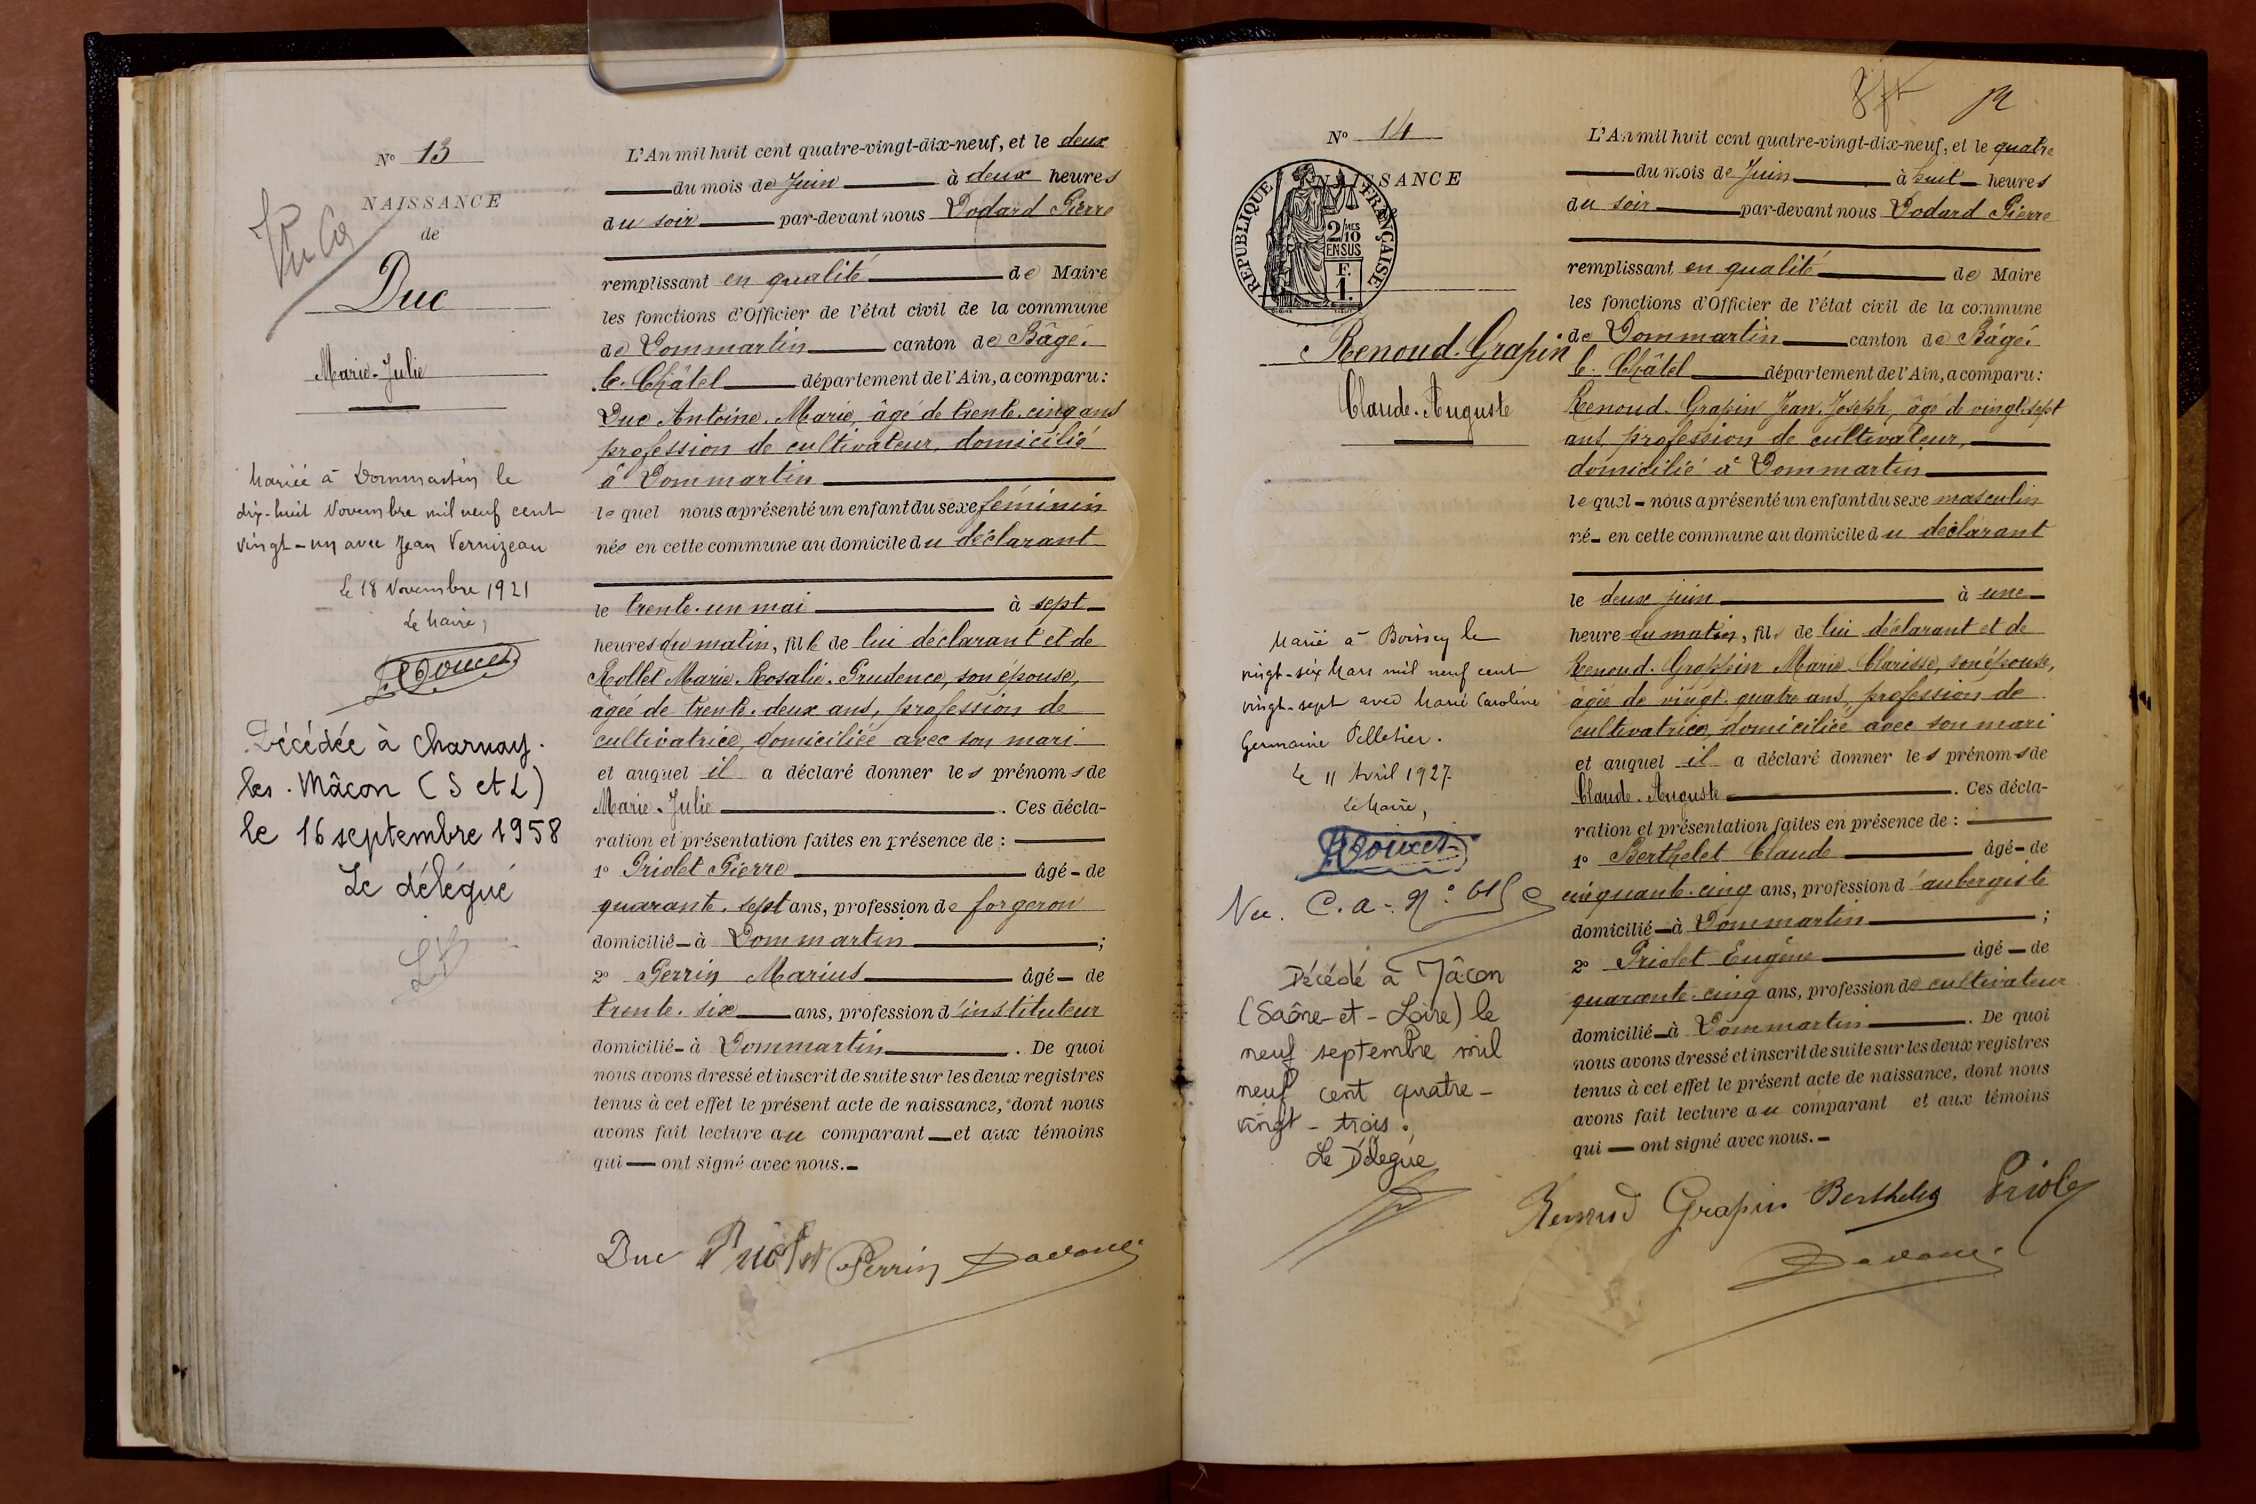 N° 13
NAISSANCE
de
Duc
Marie-Julie
Mariée à Dommartin le
dix-huit Novembre mil neuf cent
vingt-un avec Jean Vernizeau
Le 18 Novembre 1921
Le Maire,
Décédée à Charnay-
les-Mâcon (S et L)
le 16 septembre 1958
Le délégué
L'An mil huit cent quatre-vingt-dix-neuf, et le deux
du mois de Juin à deux heures
du soir par-devant nous Dodard Pierre
remplissant en qualité de Maire
les fonctions d'Officier de l'état civil de la commune
de Dommartin canton de Bâgé-
le-Châtel département de l'Ain, a comparu:
Duc Antoine-Marie, âgé de trente-cinq ans
profession de cultivateur, domicilié
à Dommartin
lequel nous a présenté un enfant du sexe féminin
née en cette commune au domicile du déclarant
le trente-un mai à sept
heures du matin, fille de lui déclarant et de
Rollet Marie-Rosalie-Prudence, son épouse,
âgée de trente-deux ans, profession de
cultivatrice, domiciliée avec son mari
et auquel il a déclaré donner les prénoms de
Marie-Julie. Ces décla-
ration et présentation faites en présence de :
1° Priolet Pierre âgé de
quarante-sept ans, profession de forgeron
domicilié à Dommartin ;
2° Perrin Marius âgé de
trente-six ans, profession d'instituteur
domicilié à Dommartin. De quoi
nous avons dressé et inscrit de suite sur les deux registres
tenus à cet effet le présent acte de naissance, dont nous
avons fait lecture au comparant et aux témoins
qui ont signé avec nous.
Duc Priolet Perrin
N° 14
NAISSANCE
RÉPUBLIQUE FRANÇAISE
2/10MES
EN SUS
F.
1.
Renoud-Grapin
Claude-Auguste
Marié à Boissey le
vingt-six Mars mil neuf cent
vingt-sept avec Marie Caroline
Germaine Pelletier.
Le 11 Avril 1927
Le Maire,
Décédé à Mâcon
(Saône-et-Loire) le
neuf septembre mil
neuf cent quatre-
vingt-trois.
Le Délégué
L'An mil huit cent quatre-vingt-dix-neuf, et le quatre
du mois de Juin à huit heures
du soir par-devant nous Dodard Pierre
remplissant en qualité de Maire
les fonctions d'Officier de l'état civil de la commune
de Dommartin canton de Bâgé-
le-Châtel département de l'Ain, a comparu:
Renoud-Grapin Jean-Joseph, âgé de vingt-sept
ans, profession de cultivateur,
domicilié à Dommartin
lequel nous a présenté un enfant du sexe masculin
né en cette commune au domicile du déclarant
le deux juin à une
heure du matin, fils de lui déclarant et de
Renoud-Grappin Marie-Clarisse, son épouse,
âgée de vingt-quatre ans, profession de
cultivatrice, domiciliée avec son mari
et auquel il a déclaré donner les prénoms de
Claude-Auguste. Ces décla-
ration et présentation faites en présence de :
1° Berthelet Claude âgé de
cinquante-cinq ans, profession d'aubergiste
domicilié à Dommartin ;
2° Priolet Eugène âgé de
quarante-cinq ans, profession de cultivateur
domicilié à Dommartin. De quoi
nous avons dressé et inscrit de suite sur les deux registres
tenus à cet effet le présent acte de naissance, dont nous
avons fait lecture au comparant et aux témoins
qui ont signé avec nous.
Renoud Grapin Berthelet Priolet